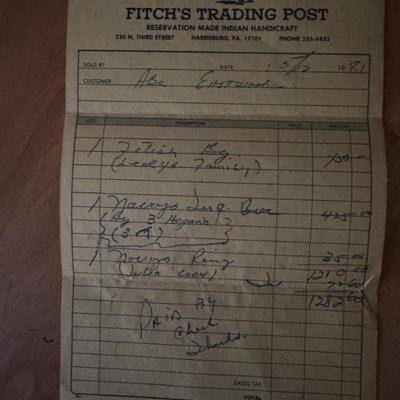 FITCH'S TRADING POST
RESERVATION MADE INDIAN HANDICRAFT
230 N. THIRD STREET HARRISBURG, PA. 17101 PHONE 233-6833
SOLD BY DATE: 5/12 1981
CUSTOMER Abe Eastwood
QTY. DESCRIPTION PRICE AMOUNT
1 Fetish By 750 00
(Leekya Family)
1 Navajo 425 00
By 3 Hogans
1 Navajo Ring 35 00
1210 00
72 60
1282 60
PAID BY
Check
Thanks
SALES TAX
TOTAL